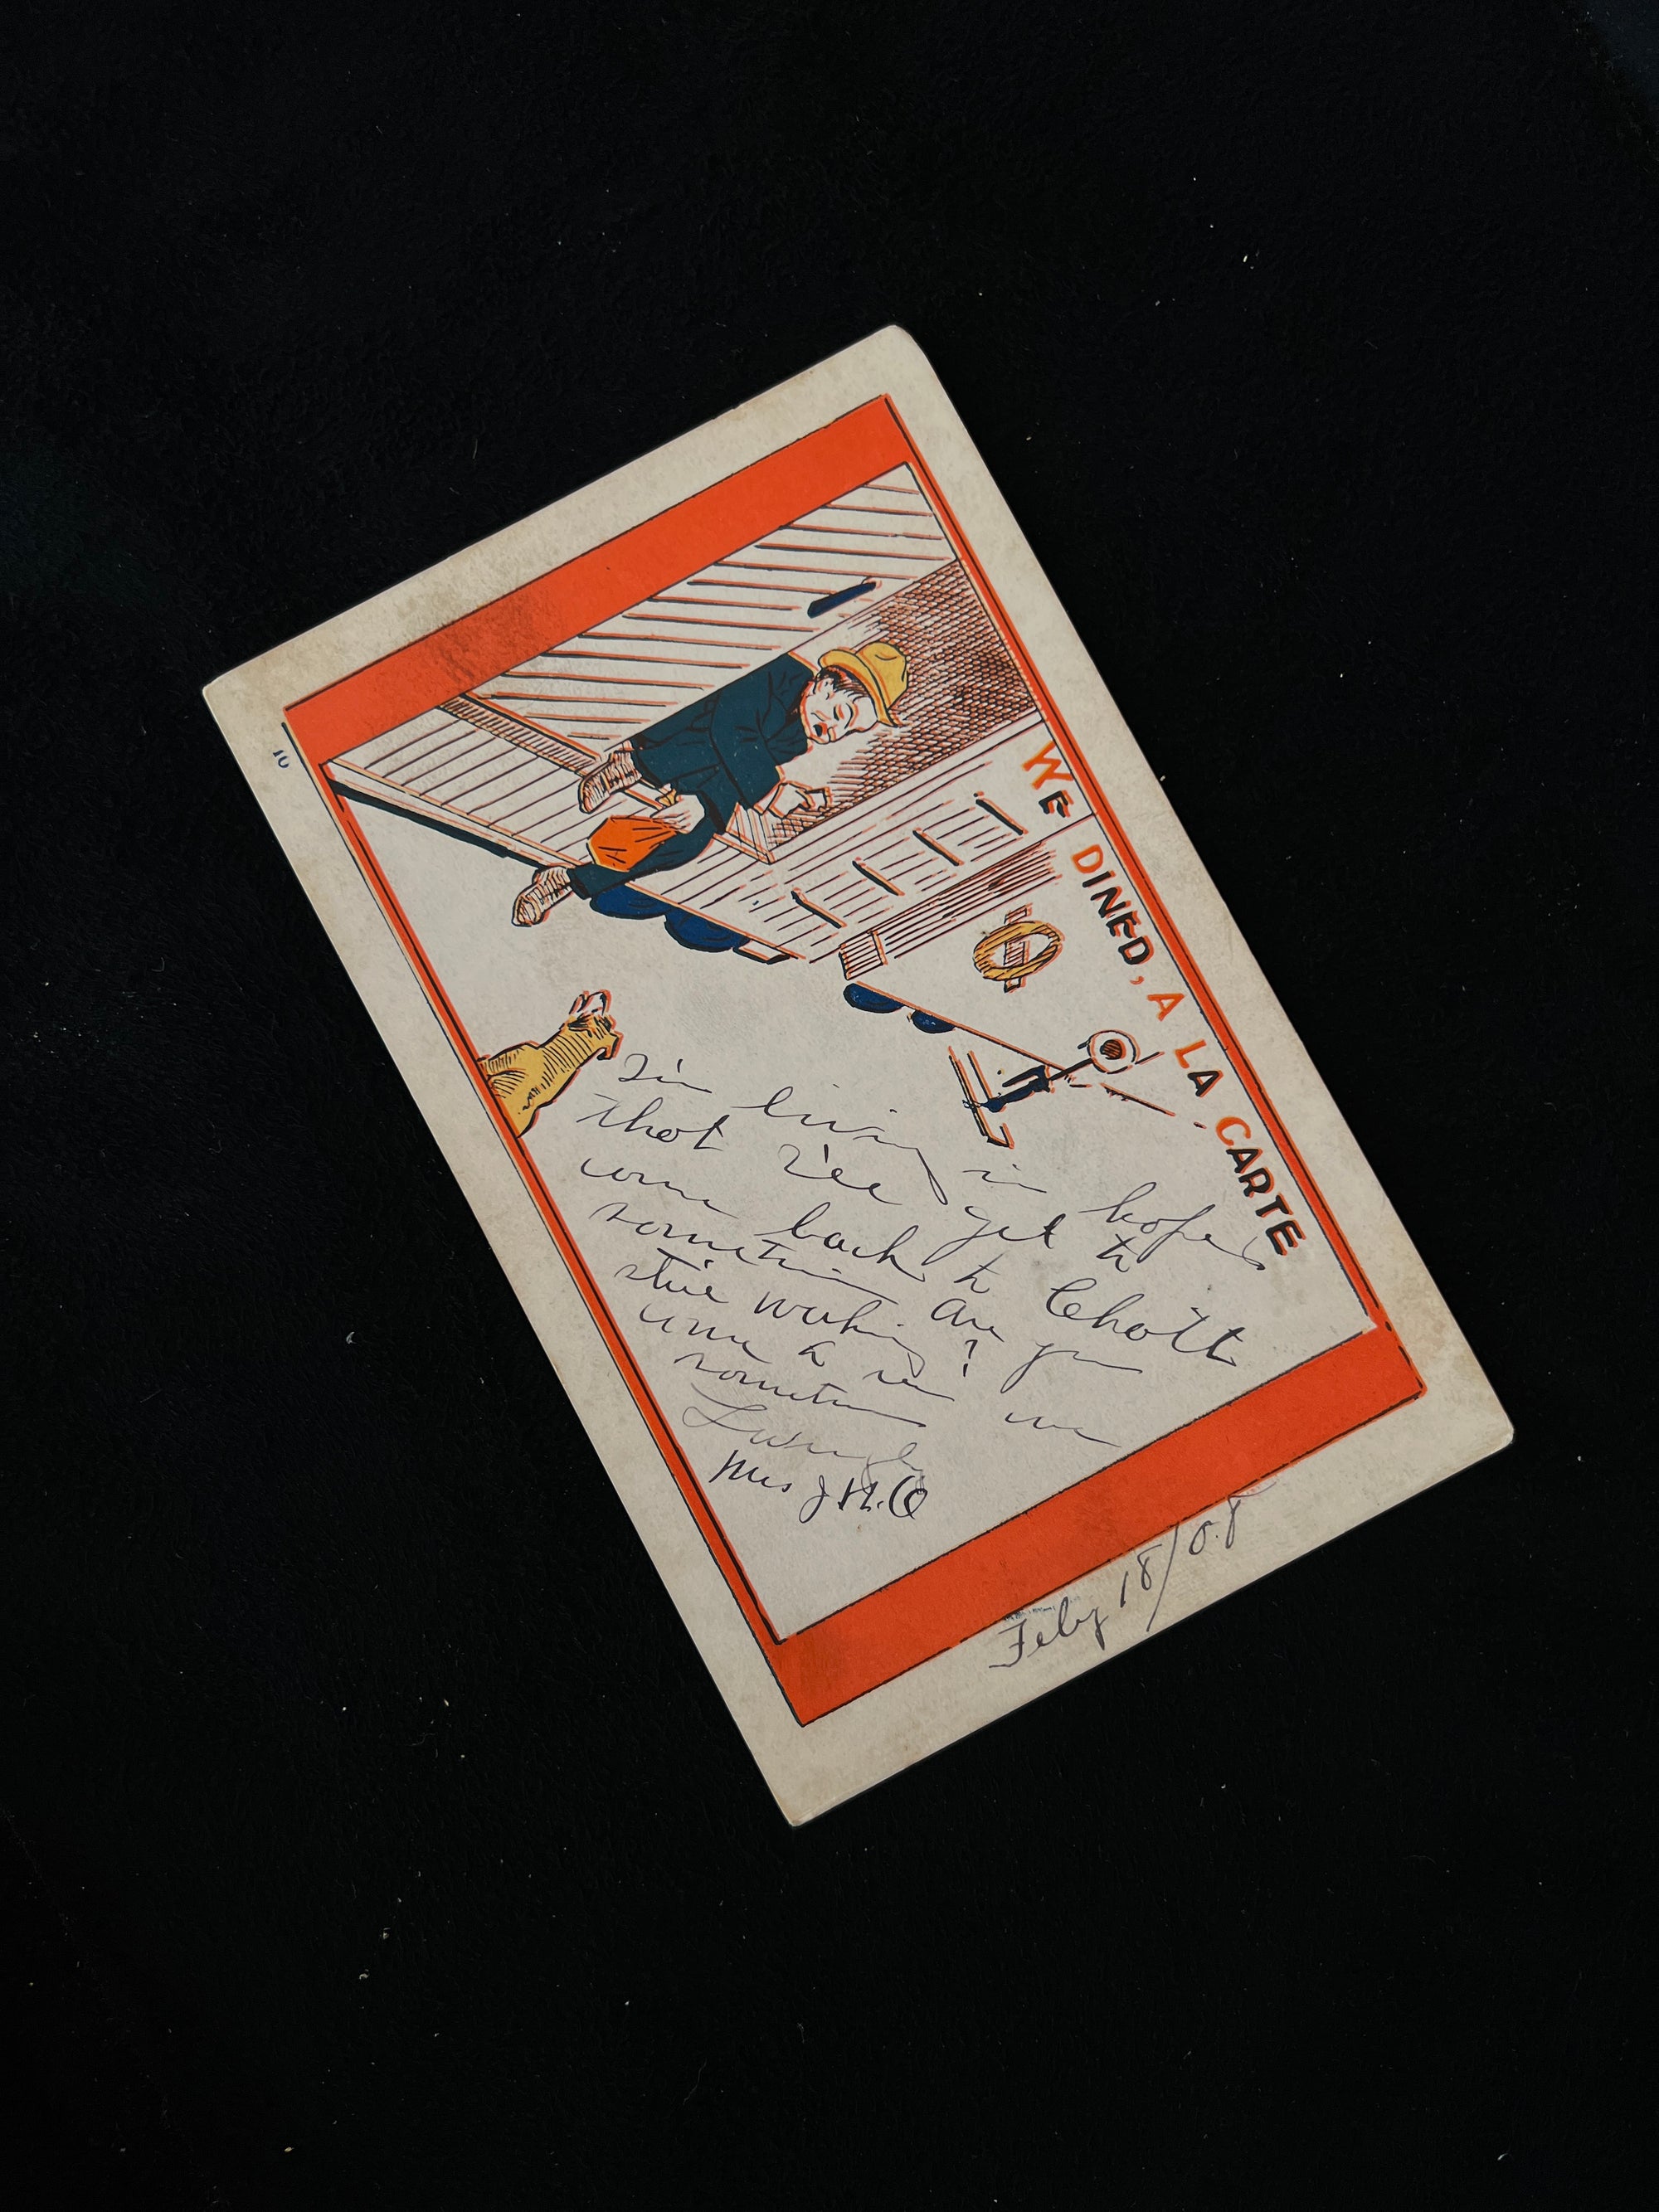 WE DINED, A LA CARTE
I'm living in hopes
that I'll get to
come back to Chatt
sometime Are you
still working? 
come to see me
sometime
Lovingly
Mrs J H. C
Feby 18/08
10